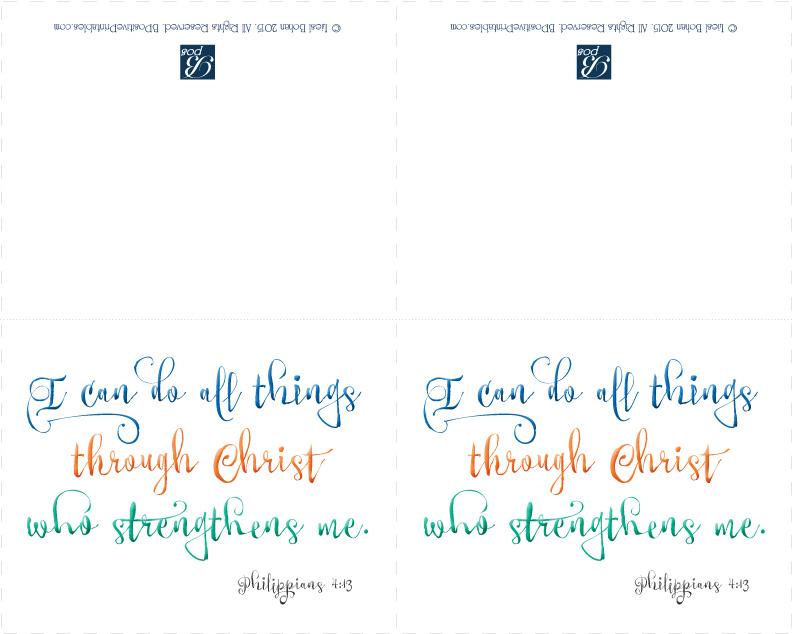 © Liesl Bohan 2015. All Rights Reserved. BPositivePrintables.com
B pos
I can do all things
through Christ
who strengthens me.
Philippians 4:13
© Liesl Bohan 2015. All Rights Reserved. BPositivePrintables.com
B pos
I can do all things
through Christ
who strengthens me.
Philippians 4:13